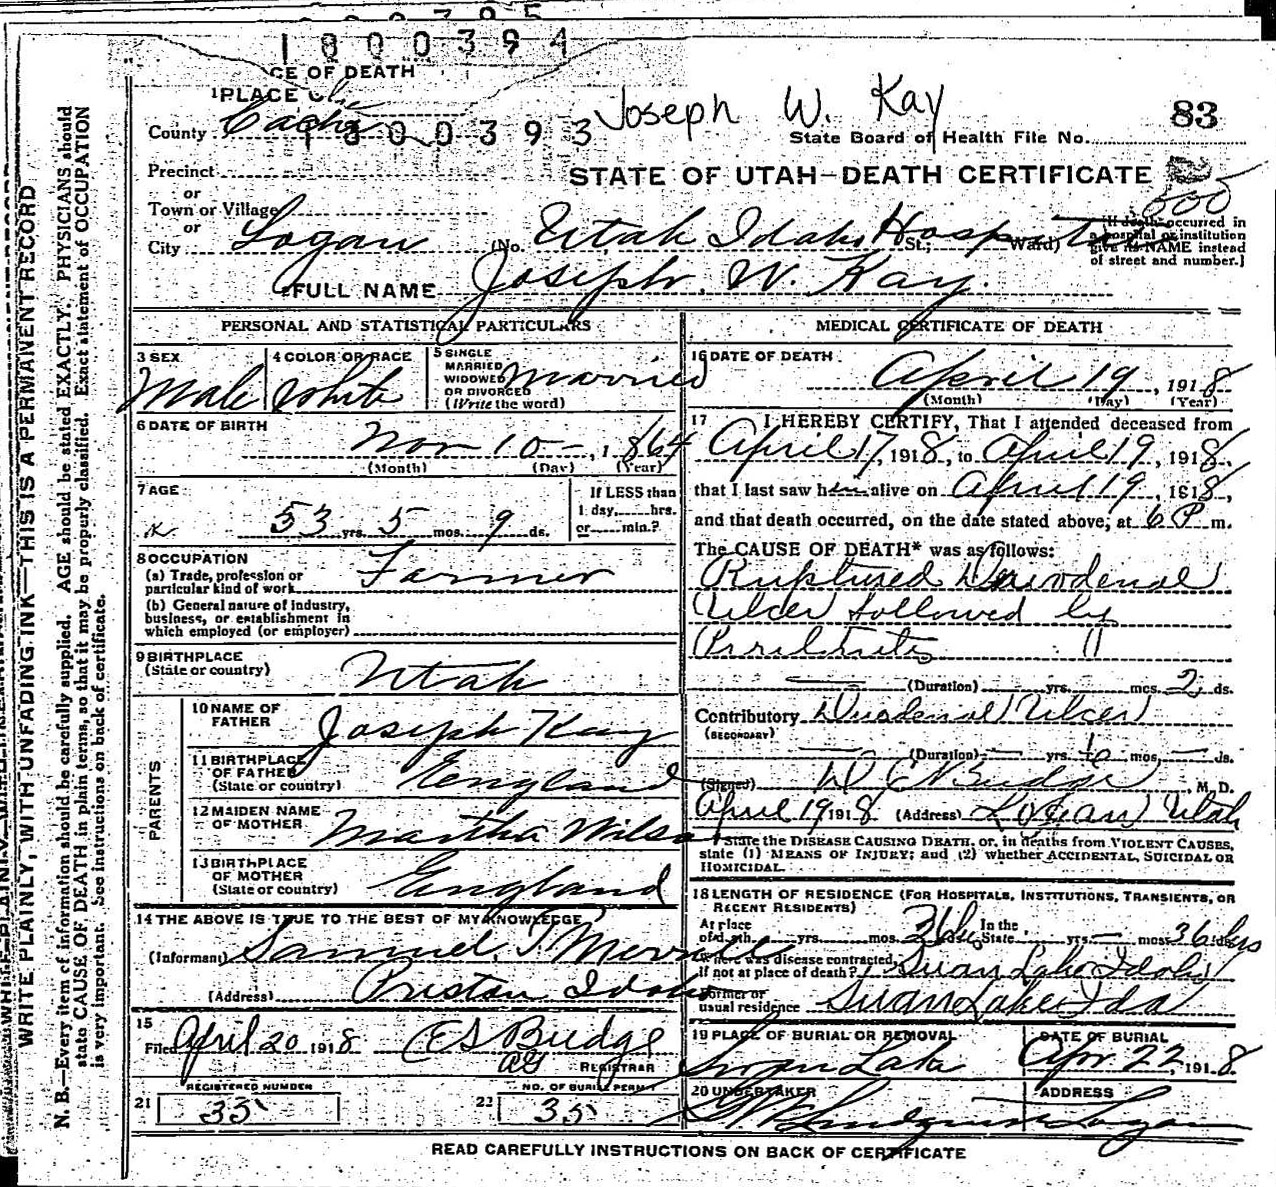 1800394
CE OF DEATH
1 PLACE O
County Cache
1800393
Joseph W. Kay
83
State Board of Health File No.
Precinct
STATE OF UTAH—DEATH CERTIFICATE
or
Town or Village
or
City Logan (No. Utah Idaho Hospital St.; Ward)
[If death occurred in
a hospital or institution
give its NAME instead
of street and number.]
2 FULL NAME Joseph. W. Kay.
PERSONAL AND STATISTICAL PARTICULARS
3 SEX
Male
4 COLOR OR RACE
White
5 SINGLE
MARRIED
WIDOWED
OR DIVORCED
(Write the word)
Married
6 DATE OF BIRTH
Nov 10 — , 1864
(Month) (Day) (Year)
7 AGE
53 yrs. 5 mos. 9 ds.
If LESS than
1 day, hrs.
or min.?
8 OCCUPATION
(a) Trade, profession or
particular kind of work Farmer
(b) General nature of industry,
business, or establishment in
which employed (or employer)
9 BIRTHPLACE
(State or country) Utah
PARENTS
10 NAME OF
FATHER Joseph Kay
11 BIRTHPLACE
OF FATHER
(State or country) England
12 MAIDEN NAME
OF MOTHER Martha Wilso
13 BIRTHPLACE
OF MOTHER
(State or country) England
14 THE ABOVE IS TRUE TO THE BEST OF MY KNOWLEDGE
(Informant) Samuel
(Address) Preston Idaho
15
Filed April 20 1918 E S Budge
REGISTRAR
REGISTERED NUMBER
21 35
NO. OF BURIAL PERMIT
22 35
MEDICAL CERTIFICATE OF DEATH
16 DATE OF DEATH
April 19, 1918
(Month) (Day) (Year)
17 I HEREBY CERTIFY, That I attended deceased from
April 17, 1918, to April 19, 1918,
that I last saw him alive on April 19, 1918,
and that death occurred, on the date stated above, at 6 P m.
The CAUSE OF DEATH* was as follows:
Ruptured Duodenal
Ulcer followed by
(Duration) yrs. mos. 2 ds.
Contributory Duodenal Ulcer
(SECONDARY)
(Duration) — yrs. 6 mos. — ds.
(Signed) D C Budge, M. D.
April 19 1918 (Address) Logan Utah
* State the DISEASE CAUSING DEATH, or, in deaths from VIOLENT CAUSES,
state (1) MEANS OF INJURY; and (2) whether ACCIDENTAL, SUICIDAL OR
HOMICIDAL.
18 LENGTH OF RESIDENCE (FOR HOSPITALS, INSTITUTIONS, TRANSIENTS, OR
RECENT RESIDENTS)
At place In the
of death yrs. mos. 36 hrs State yrs. — mos. 36 hrs
Where was disease contracted,
If not at place of death? Swan Lake Idaho
Former or
usual residence Swan Lake Ida
19 PLACE OF BURIAL OR REMOVAL
Swan Lake
DATE OF BURIAL
Apr 22, 1918
20 UNDERTAKER
ADDRESS
Logan
READ CAREFULLY INSTRUCTIONS ON BACK OF CERTIFICATE
WRITE PLAINLY, WITH UNFADING INK—THIS IS A PERMANENT RECORD
N. B.—Every item of information should be carefully supplied. AGE should be stated EXACTLY. PHYSICIANS should
state CAUSE OF DEATH in plain terms, so that it may be properly classified. Exact statement of OCCUPATION
is very important. See instructions on back of certificate.